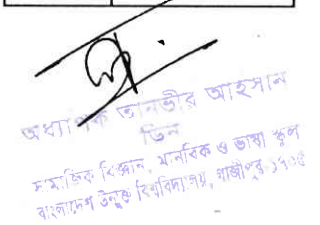 অধ্যাপক তানভীর আহসান
ডিন
সামাজিক বিজ্ঞান, মানবিক ও ভাষা স্কুল
বাংলাদেশ উন্মুক্ত বিশ্ববিদ্যালয়, গাজীপুর ১৭০৫